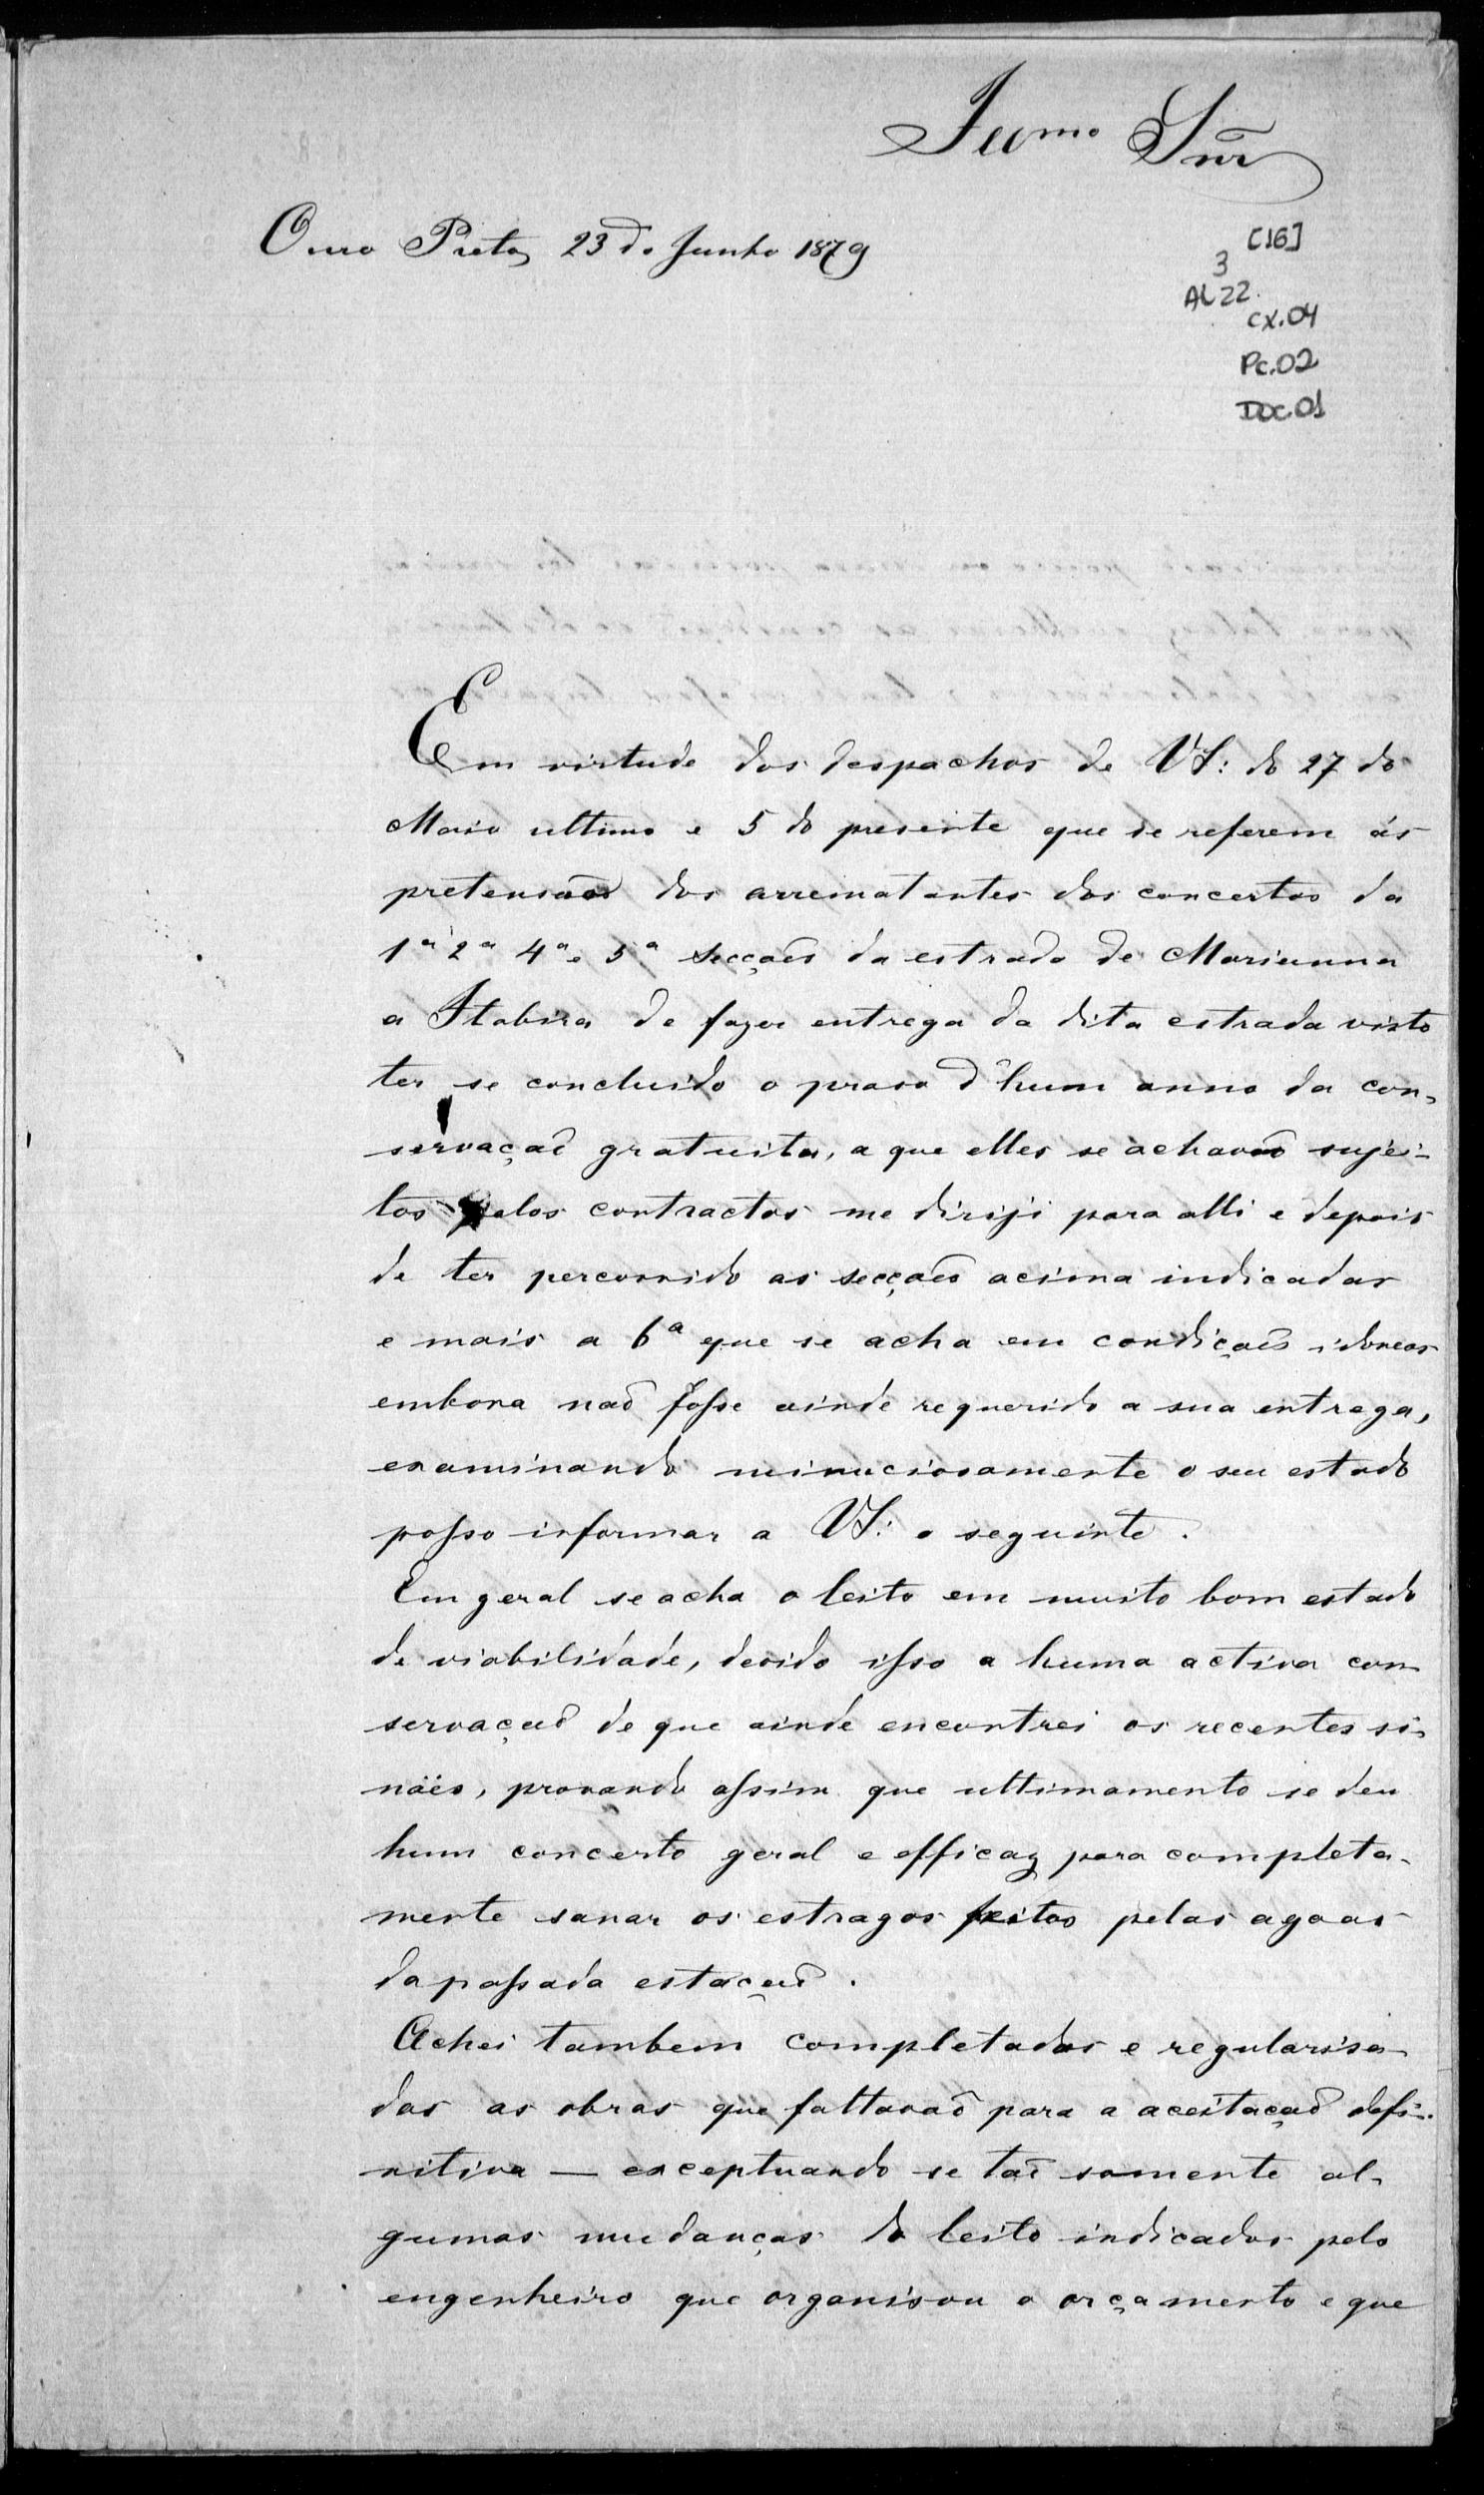 Illmo Snr
Ouro Preto, 23 de Junho 1879
[16]
3
AL 22.
CX.04
Pc.02
DOC.01
Em virtude dos despachos de VS: de 27 de
Maio ultimo e 5 do presente que se referem ás
pretensões dos arrematantes dos concertos da
1ª 2ª 4ª e 5ª secções da estrada de Marianna
a Itabira de fazer entrega da dita estrada visto
ter se concluido o praso d'hum anno da con-
servação gratuita, a que elles se achavão sujei-
tos pelos contractos me diriji para alli e depois
de ter percorrido as secções acima indicadas
e mais a 6ª que se acha em condições idoneas
embora não fosse ainde requerido a sua entrega,
examinando minuciosamente o seu estado
posso informar a VS: o seguinte.
Em geral se acha o leito em muito bom estado
de viabilidade, devido isso a huma activa con-
servação de que ainde encontrei os recentes si-
näes, provando assim que ultimamente se deu
hum concerto geral e efficaz para completa-
mente sanar os estragos feitos pelas agoas
da passada estação.
Achei tambem completadas e regularisa-
das as obras que faltavão para a aceitação defi-
nitiva — exceptuando se tão somente al-
gumas mudanças do leito indicadas pelo
engenheiro que organisou o orçamento e que